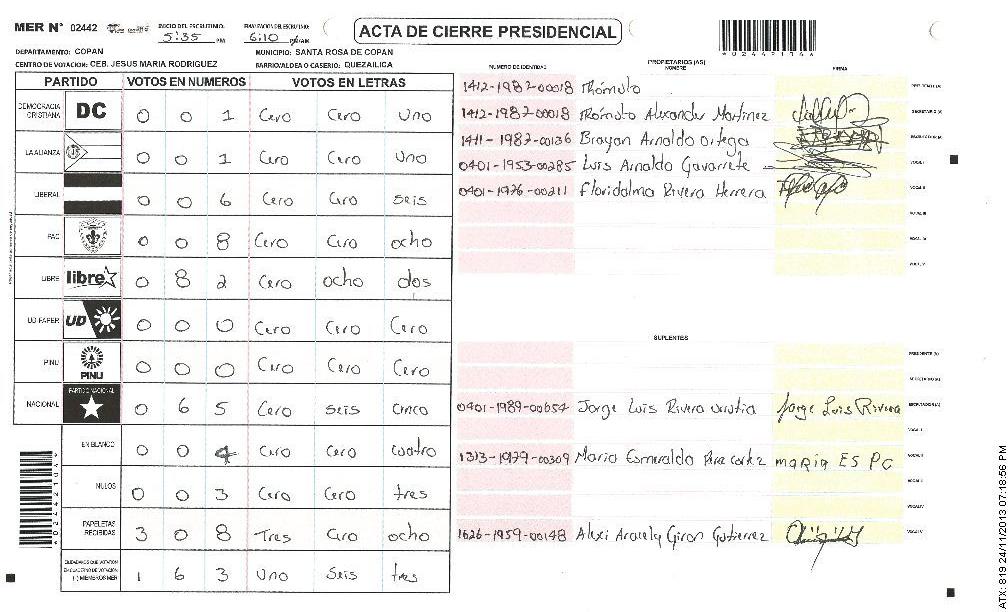 MER N° 02442
INICIO DEL ESCRUTINIO:
5:35 PM
FINALIZACION DEL ESCRUTINIO:
6:10 PM
ACTA DE CIERRE PRESIDENCIAL
DEPARTAMENTO: COPAN
MUNICIPIO: SANTA ROSA DE COPAN
CENTRO DE VOTACION: CEB. JESUS MARIA RODRIGUEZ
BARRIO/ALDEA O CASERIO: QUEZAILICA
PARTIDO VOTOS EN NUMEROS VOTOS EN LETRAS
DEMOCRACIA CRISTIANA DC 0 0 1 Cero Cero Uno
LA ALIANZA 0 0 1 Cero Cero Uno
LIBERAL 0 0 6 Cero Cero seis
PAC 0 0 8 Cero Cero ocho
LIBRE libre 0 8 2 Cero ocho dos
UD FAPER UD 0 0 0 Cero Cero Cero
PINU PINU 0 0 0 Cero Cero Cero
NACIONAL PARTIDO NACIONAL 0 6 5 Cero seis cinco
EN BLANCO 0 0 4 Cero Cero cuatro
NULOS 0 0 3 Cero Cero tres
PAPELETAS RECIBIDAS 3 0 8 Tres Cero ocho
CIUDADANOS QUE VOTARON EN CUADERNO DE VOTACION (+) MIEMBROS MER 1 6 3 Uno Seis tres
NUMERO DE IDENTIDAD
PROPIETARIOS (AS)
NOMBRE
FIRMA
1412-1982-00018 Rómulo PRESIDENTE (A)
1412-1982-00018 Rómulo Alexander Martinez SECRETARIO (A)
1411-1987-00136 Brayan Arnaldo Ortega ESCRUTADOR (A)
0401-1953-00285 Luis Arnaldo Gavarrete VOCAL I
0401-1976-00211 Floridalma Rivera Herrera VOCAL II
VOCAL III
VOCAL IV
VOCAL V
SUPLENTES
PRESIDENTE (A)
SECRETARIO (A)
0401-1989-00654 Jorge Luis Rivera Jorge Luis Rivera ESCRUTADOR (A)
VOCAL I
1313-1979-00309 Maria Esmeralda maria ES PC VOCAL II
VOCAL III
VOCAL IV
1626-1959-00148 Alexi Aracely Giron Gutierrez VOCAL V
ATX: 819 24/11/2013 07:18:56 PM